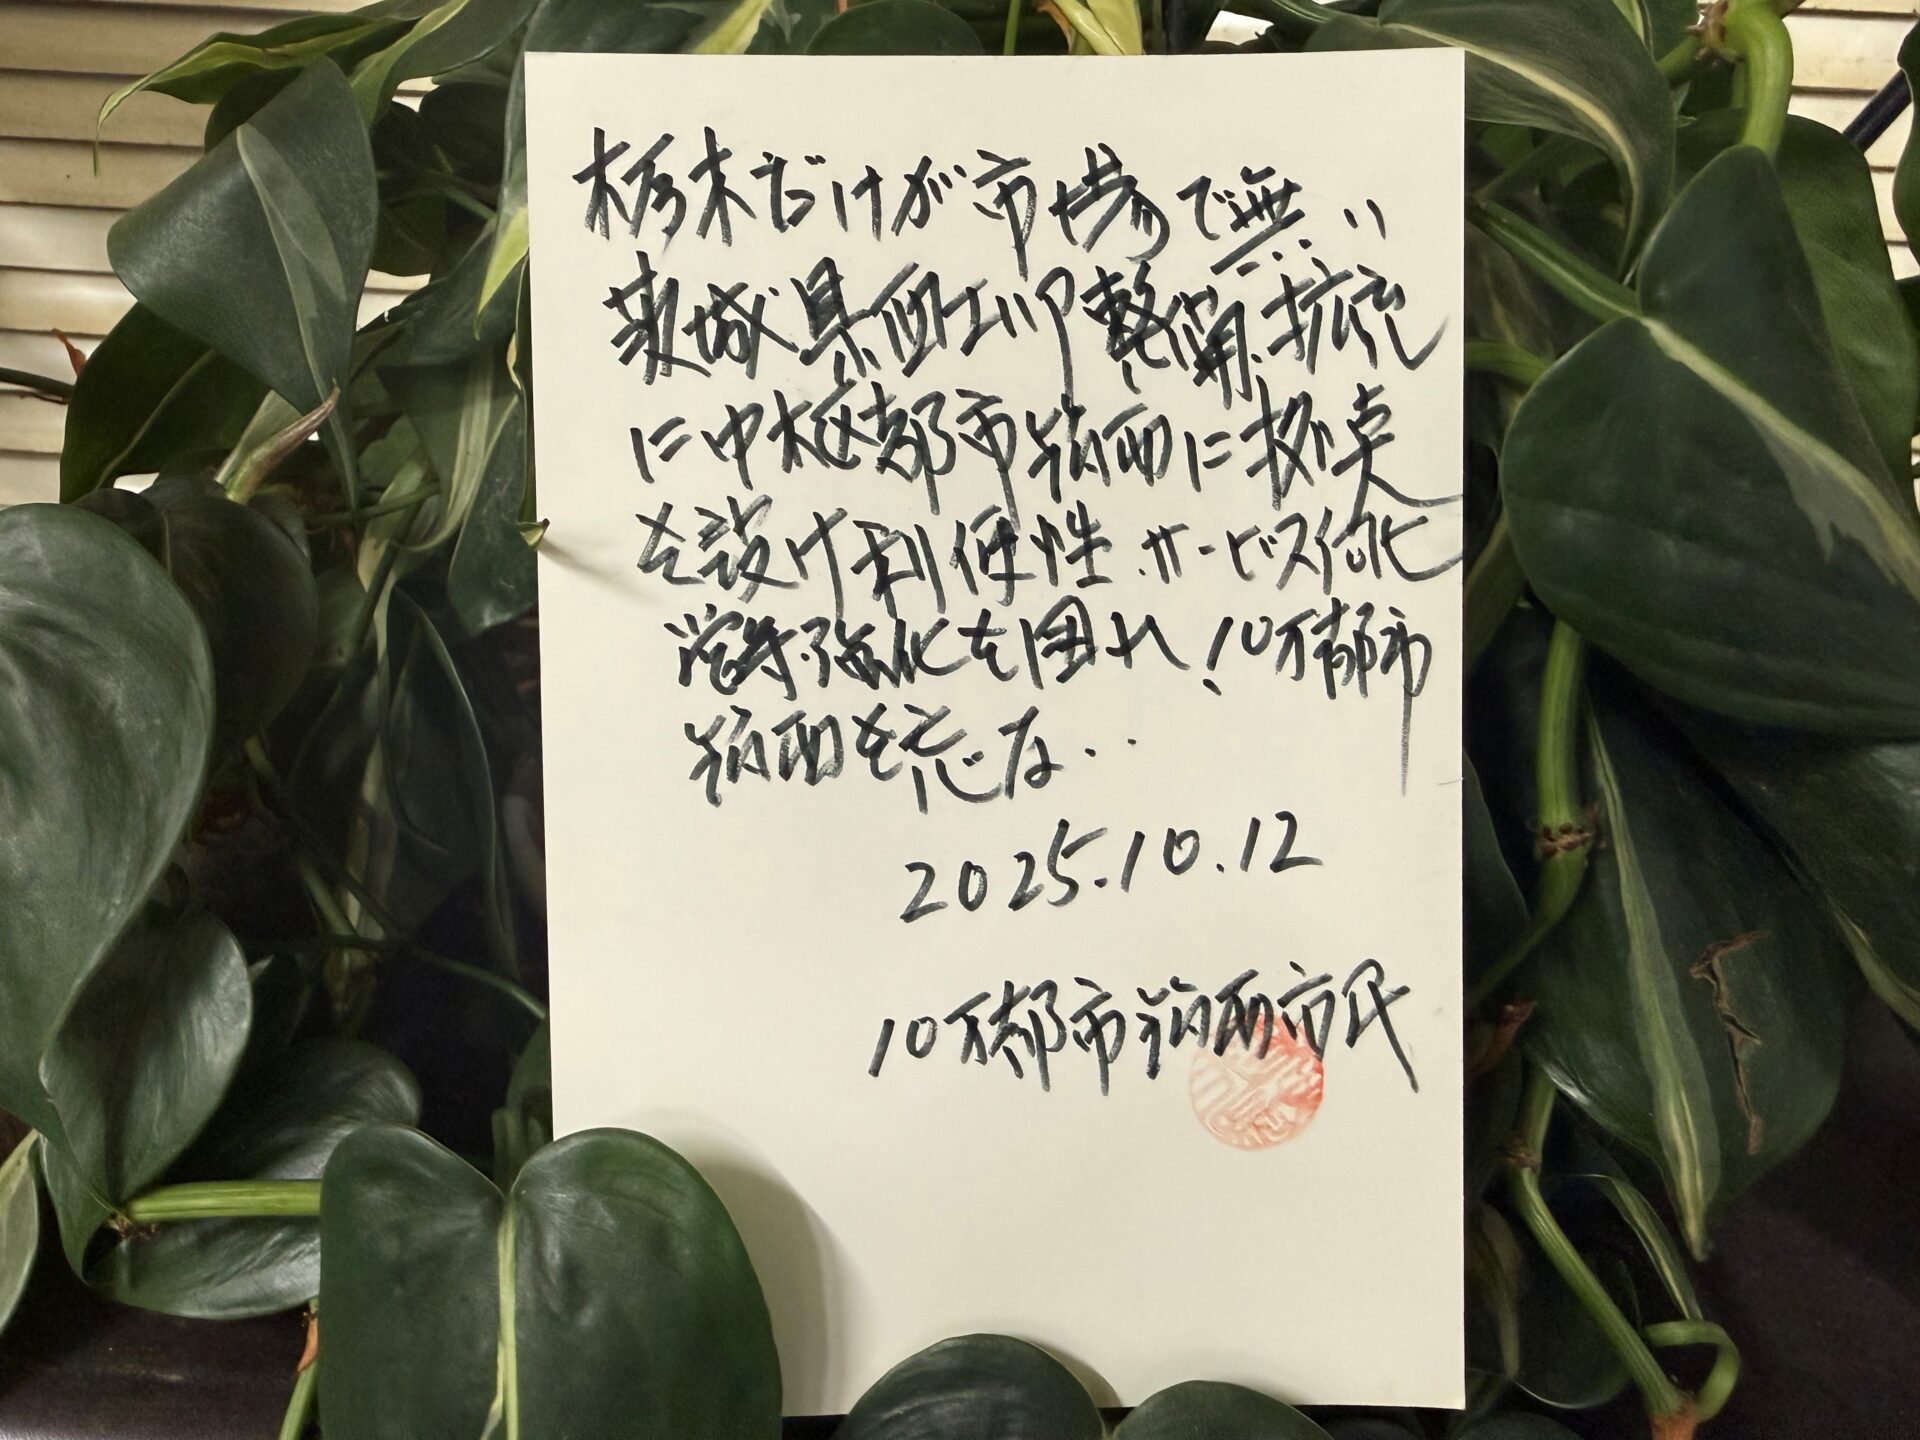 栃木だけが市場で無い
茨城県西エリア整備.拡充
に中核都市筑西に拠点
を設け利便性.サービス強化
営業強化を図れ!10万都市
筑西を忘るな..
2025.10.12
10万都市筑西市民